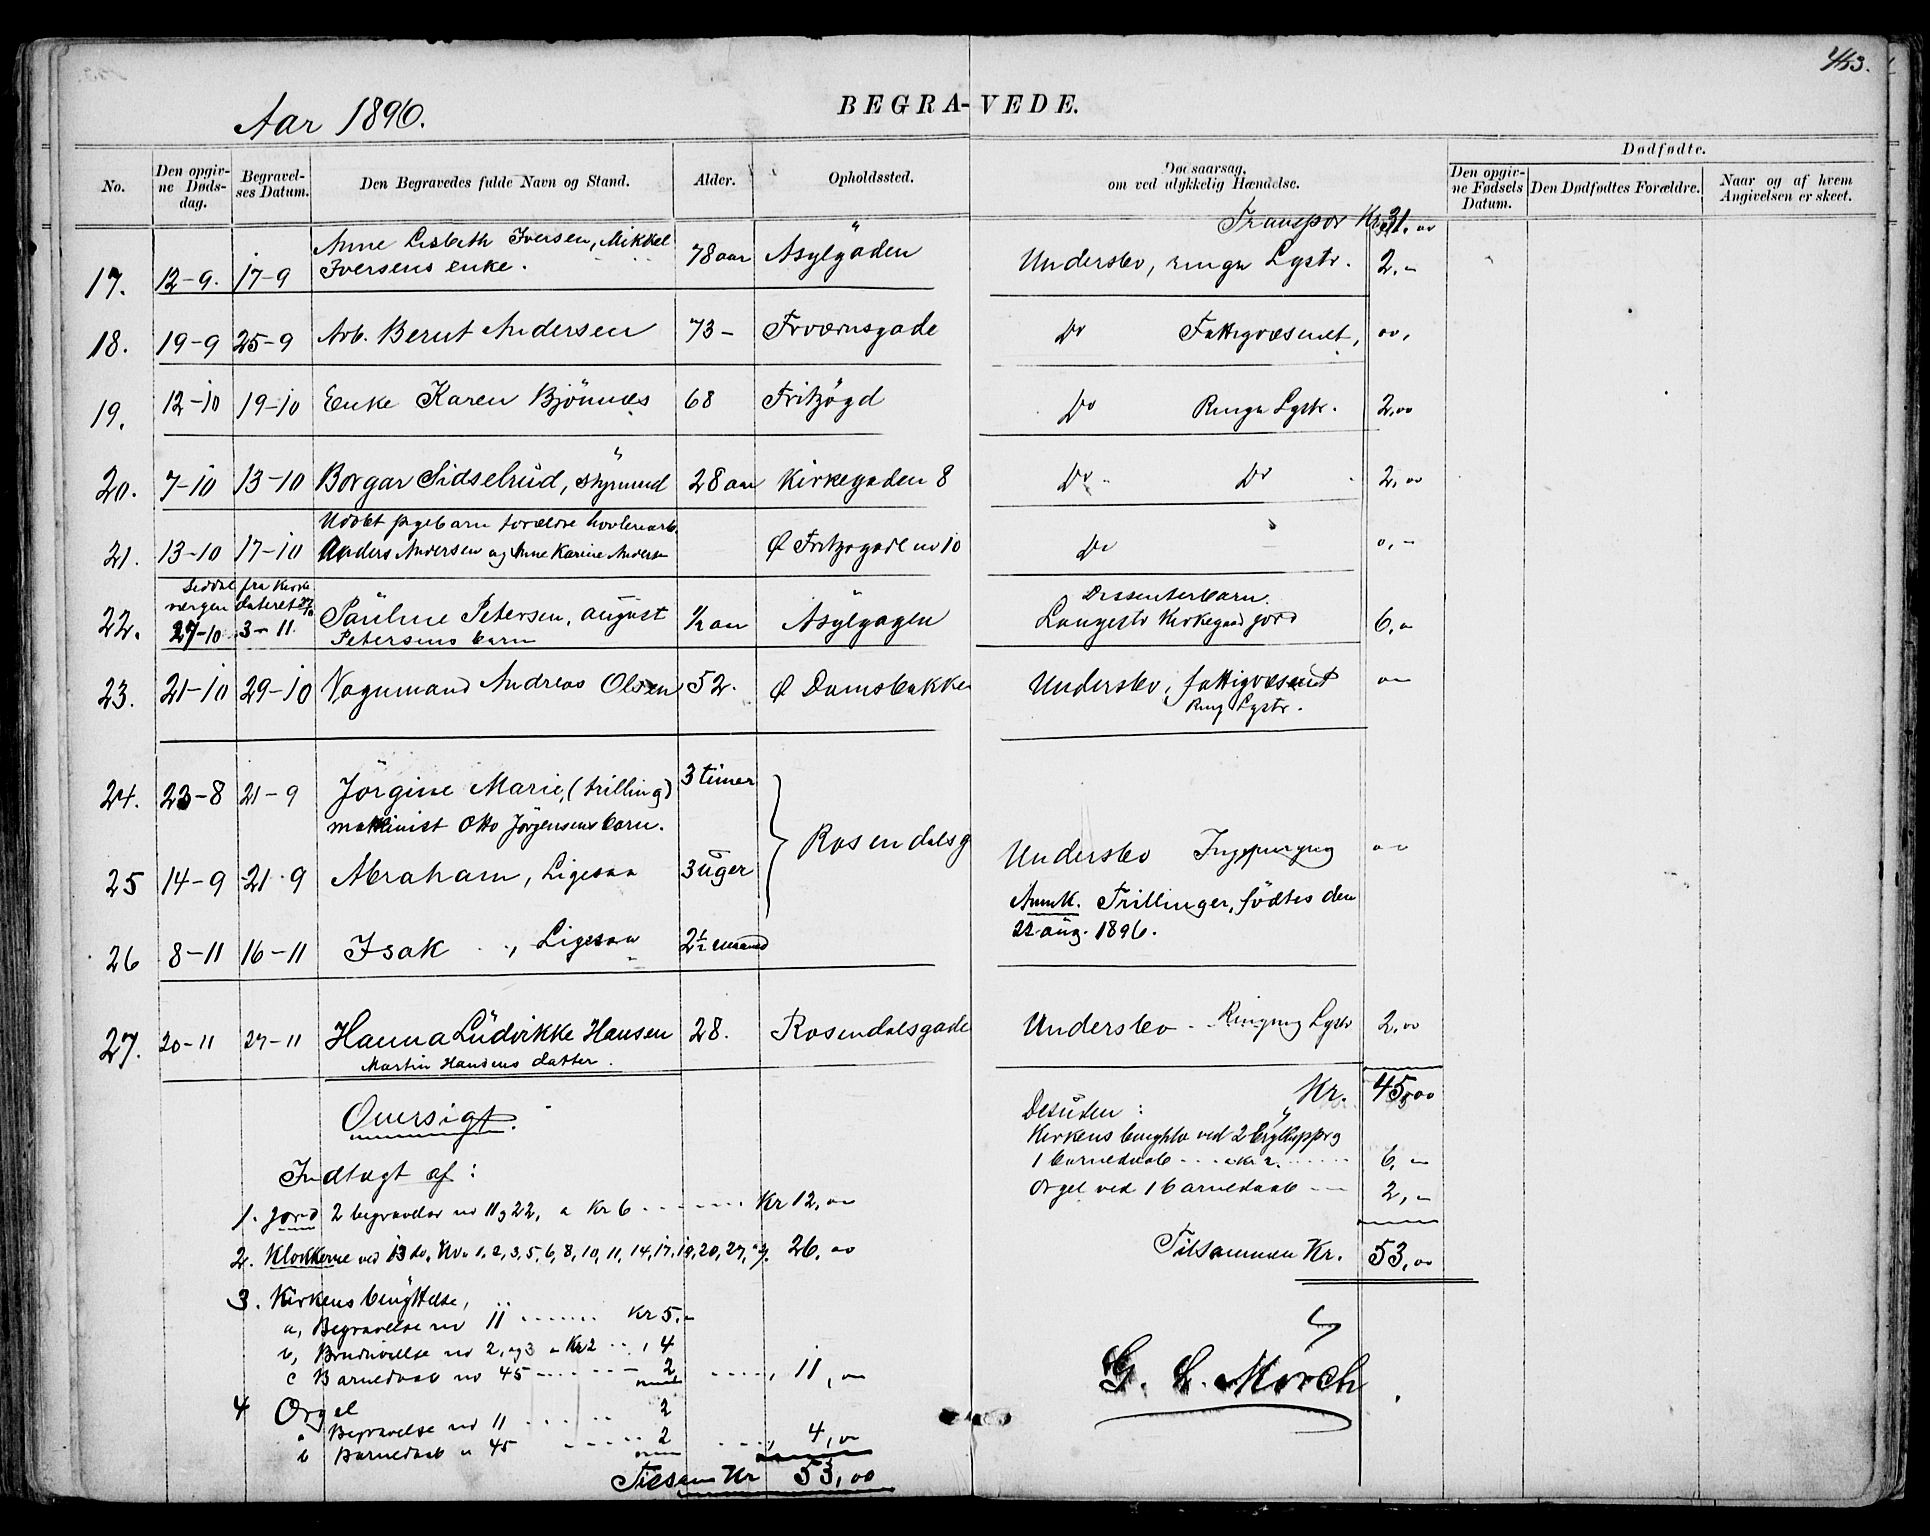 453.
Aar 1896.
BEGRAVEDE.
No.
Den opgivne Dødsdag.
Begravelses Datum.
Den Begravedes fulde Navn og Stand.
Alder.
Opholdssted.
Dødsaarsag, om ved ulykkelig Hændelse.
Dødfødte.
Den opgivne Fødsels Datum.
Den Dødfødtes Forældre.
Naar og af hvem Angivelsen er skeet.
Transpor Kr 31.00
17. 12-9. 17-9 Anne Lisbeth Iversen, Mikkel Iversens enke. 78 aar Asylgaden Underslev, Lystr. 2,-
18. 19-9 25-9 Arb. Bernt Andersen 73- Do Fattigvæsnet, 00,
19. 12-10 19-10 Enke Karen Bjönnes 68 Fritzögd Do Lystr. 2,00
20. 7-10 13-10 Borgar Sidselrud, styrmand 28 aar Kirkegaden 8 Do Do 2,00
21. 13-10 17-10 Udöbt pigebarn forældre Anders Andersen og Anne Karine Andersen Ø Fritzogade no 10 Do 0,-
Seddel fra Kirkevergen dateret
22. 27-10 3-11. Pauline Petersen, august Petersens barn 1/2 aar Dissenterbarn. Langestr Kirkegaard jord 6,-
23. 21-10 29-10 Vognmand Andreas Olsen 52. Ø Damsbakke Underslev, fattigvæsnet Ring Lystr.
24. 23-8 21-9 Jörgine Marie, (trilling) maskinist Otto Jörgensens barn. 3 timer
25 14-9 21-9 Abraham, Ligesaa 3 uger Rosendalsg Underslev Ingen
Anmk. Trillinger, födtes den 22 aug. 1896.
26 8-11 16-11 Isak, Ligesaa 2 1/2 maaned
27. 20-11 27-11 Hanna Ludvikke Hansen Martin Hansens datter. 28. Rosendalsgade Underslev - Ringning Lystr 2,00
Kr. 45,00
Oversigt.
Desuden:
Kirkens ved 2
1 barnedaab 6,-
Orgel ved 1 barnedaab 2,-
Tilsammen Kr. 53,00
Indtægt af:
1. Jord 2 begravelser no 11 og 22, a Kr 6 Kr 12,00
2. Klokkerne ved 13 do, No. 1, 2, 3, 5, 6, 8, 10, 11, 14, 17, 19, 20, 27, 26,00
3. Kirkens benyttelse,
a, Begravelse no 11 Kr 5.-
b, Brudevielse no 2, og 3 a Kr 2 , 4
c Barnedaab no 45 2 11,00
4 Orgel
a Begravelse no 11 2
b Barnedaab n 45 2 4,00
Tilsam Kr 53,00
G. L. Mörch